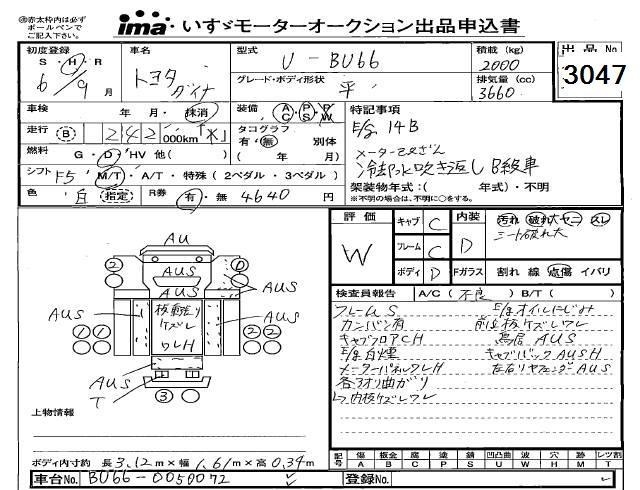 ㊟赤太枠内は必ず
ボールペンで
ご記入下さい。
ima いすゞモーターオークション出品申込書
出品No
3047
初度登録
S・H・R
6/9月
車名
トヨタ
ダイナ
型式
U-BU66
グレード・ボディ形状
平
積載(kg)
2000
排気量(cc)
3660
車検 年 月・抹消
装備 AC PS PW
走行 B 242 000km
タコグラフ
有・無 別体
( 年 月)
燃料 G・D・HV 他( )
シフト F5 M/T・A/T・特殊(2ペダル・3ペダル)
色 白 指定
R券 有・無 4640円
特記事項
E/g 14B
冷却水吹き返し B級車
架装物年式:( 年式)・不明
※不明の場合は、不明に○をする。
評価
W
キャブ C
フレーム C
ボディ D
内装 D
汚れ 破れ大 ヤニ スレ
シート破れ大
Fガラス 割れ 線 点傷 イバリ
検査員報告 A/C(不良) B/T( )
フレームS
カンバン有
キャブフロアCH
E/g白煙
メーターパネルワレH
各アオリ曲がり
└内板ケズレワレ
E/gオイルにじみ
前は板ケズレワレ
鳥居 AUS
キャブバックAUSH
左右リヤフェンダーAUS
AU
② AUS
AUS
AUS
AUS
AUS
ケズレ
ワレH
① ①
② ②
AUS
T
③
上物情報
ボディ内寸約 長3.12m×幅1.61m×高0.34m
記号 傷A 板金B 腐C 塗P 錆S 凹凸曲U 波W 穴H 跡M レツ割T
車台No. BU66-0050072
登録No.